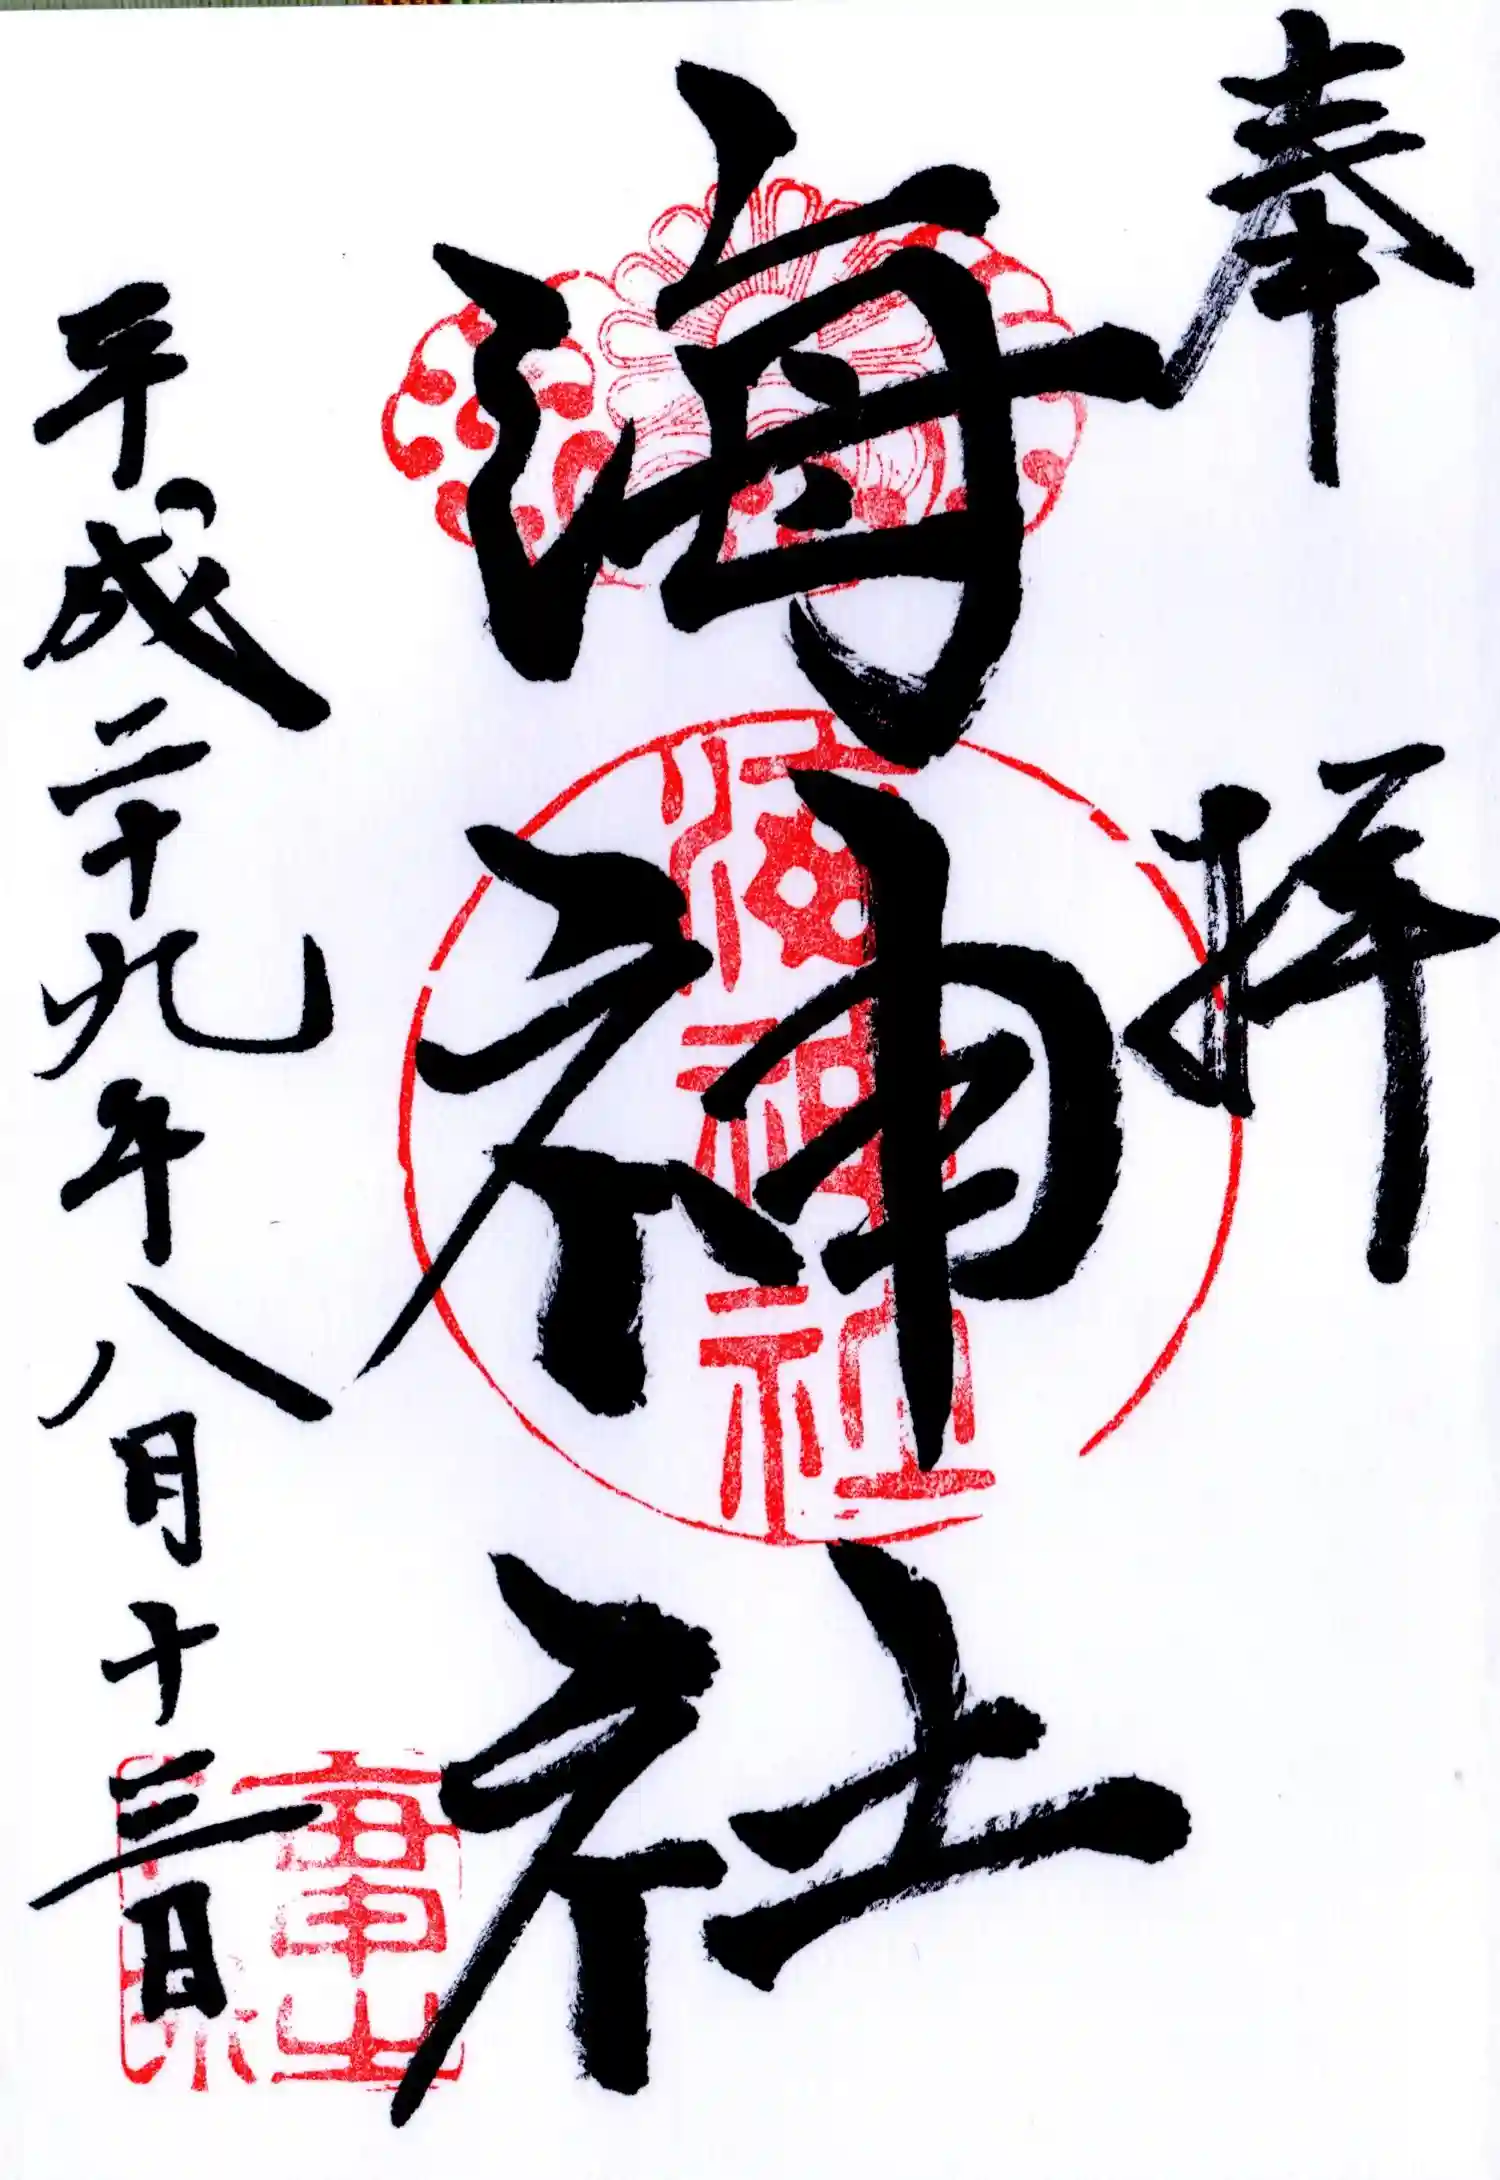 奉拝
海神社
海神社
平成二十九年八月十三日